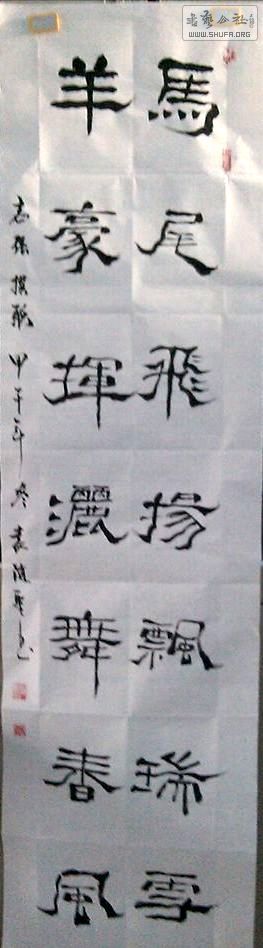 書藝公社
WWW.SHUFA.ORG
馬尾飛揚飄瑞雪
羊豪揮灑舞春風
撰聯 甲午年冬